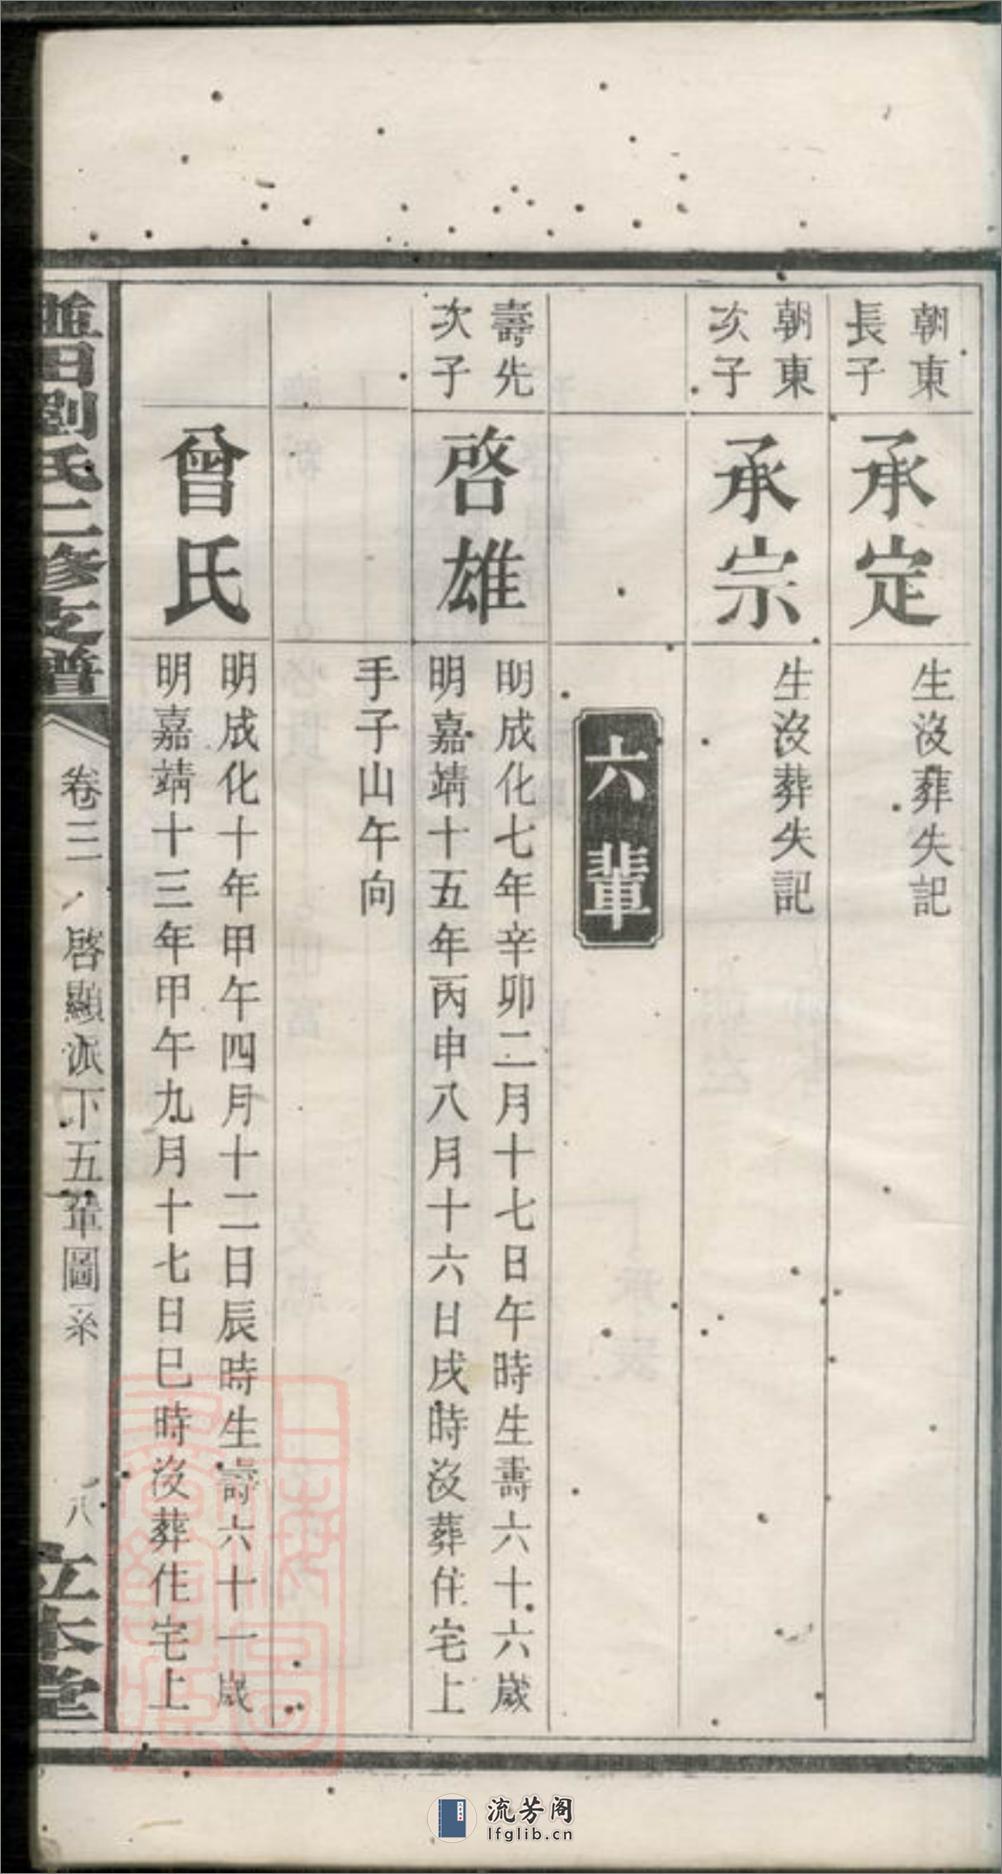 朝東
長子
承定
生沒葬失記
朝東
次子
承宗
生沒葬失記
六輩
壽先
次子
啓雄
明成化七年辛卯二月十七日午時生壽六十六歲
明嘉靖十五年丙申八月十六日戌時沒葬住宅上
手子山午向
曾氏
明成化十年甲午四月十二日辰時生壽六十一歲
明嘉靖十三年甲午九月十七日巳時沒葬住宅上
田劉氏二修支譜
卷三
啓顯派下五輩圖系
八
立本堂
上海圖書館藏
流芳阁
lfglib.cn